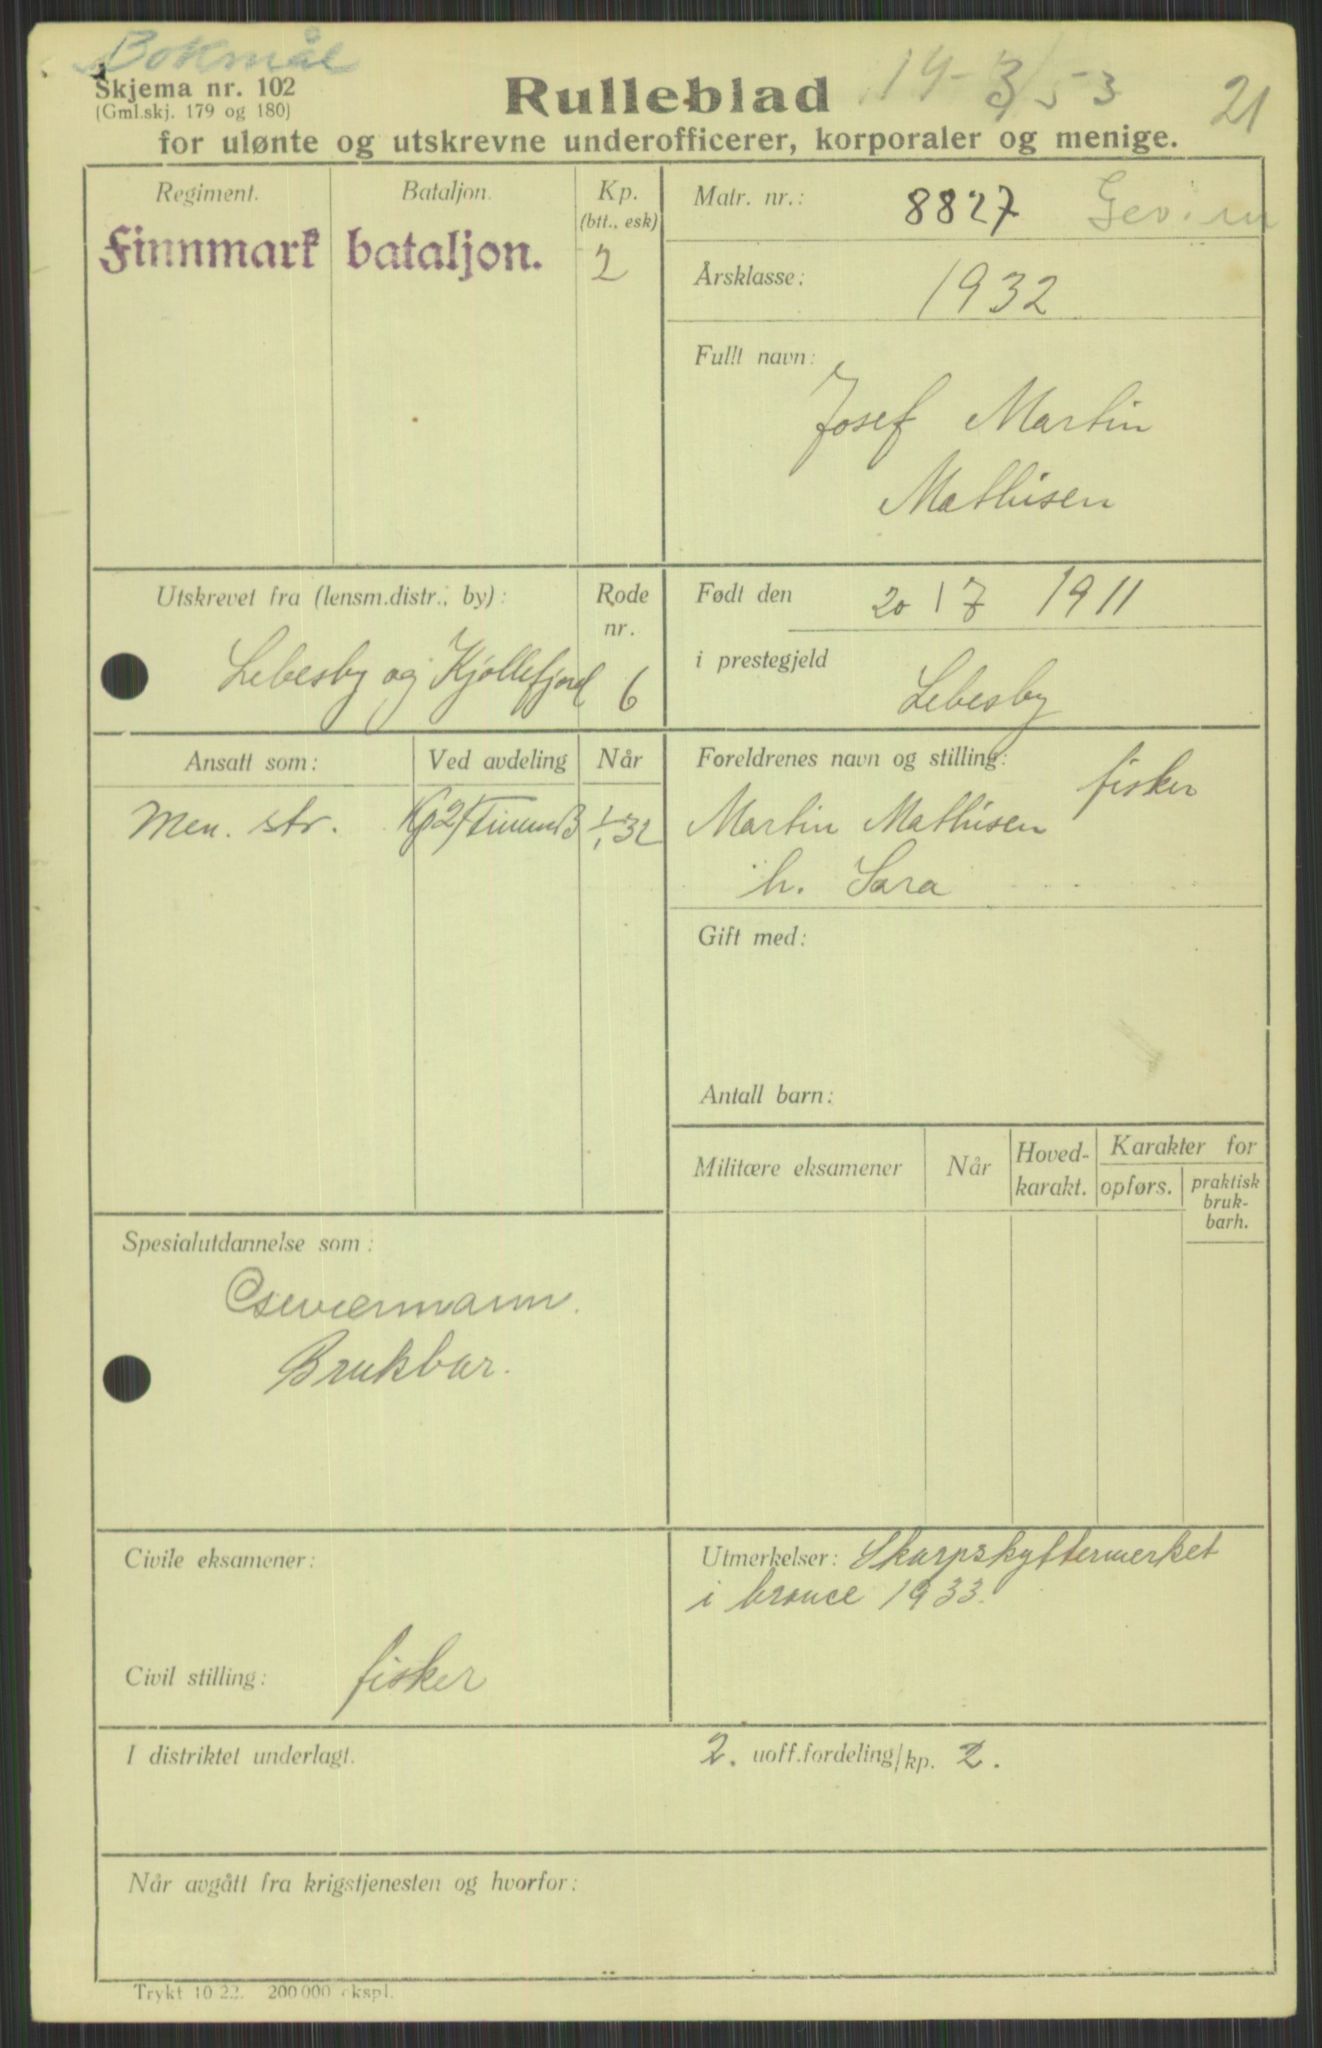 Bokmål
Skjema nr. 102
(Gml.skj. 179 og 180)
Rulleblad
14-3/53
21
for ulønte og utskrevne underofficerer, korporaler og menige.
Regiment.
Bataljon.
Kp.
(btt., esk)
Finnmark bataljon.
2
Matr. nr.: 8827
Årsklasse: 1932
Fullt navn:
Josef Martin
Mathisen
Utskrevet fra (lensm.distr., by):
Rode
nr.
Lebesby og Kjøllefjord
6
Født den 20/7 1911
i prestegjeld
Lebesby
Ansatt som:
Ved avdeling
Når
Men. str.
1/1 32
Foreldrenes navn og stilling:
fisker
Martin Mathisen
h. Sara
Gift med:
Antall barn:
Militære eksamener
Når
Hoved-
karakt.
Karakter for
opførs.
praktisk
bruk-
barh.
Spesialutdannelse som:
Brukbar.
Civile eksamener:
Civil stilling: fisker
Utmerkelser: Skarpskyttermerket
i bronce 1933.
I distriktet underlagt.
2. uoff.fordeling/kp. 2.
Når avgått fra krigstjenesten og hvorfor:
Trykt 10 22. 200 000 ekspl.